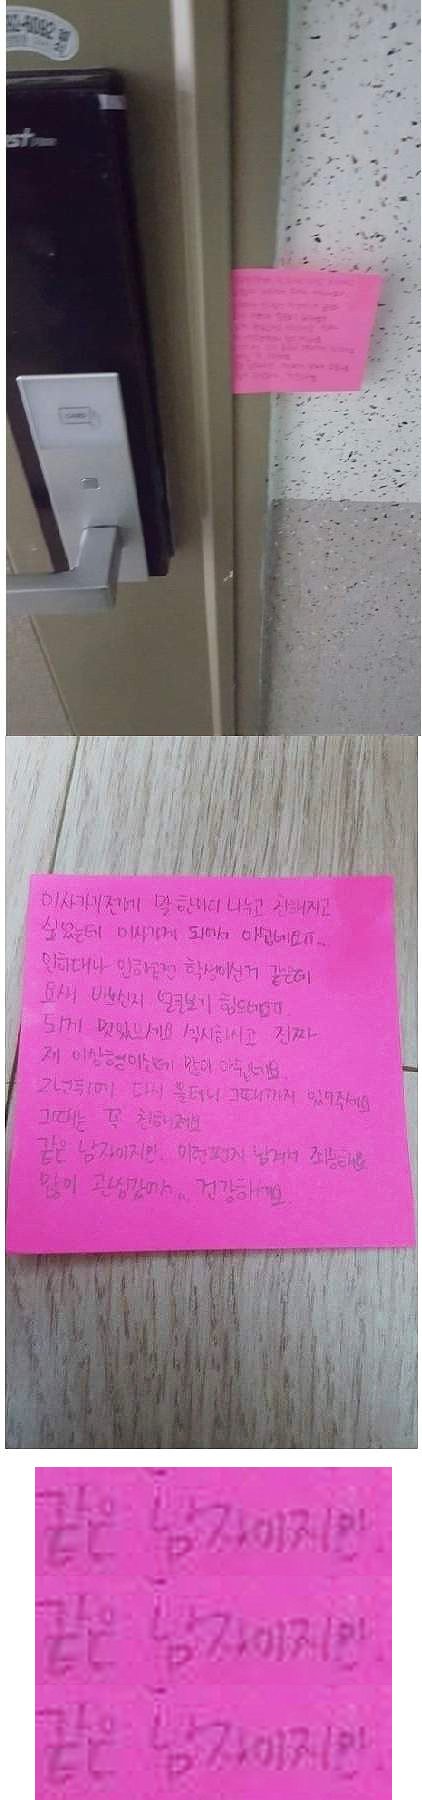 CARD
이사가기전에 말 한마디 나누고 친해지고
싶었는데 이사가게 되어서 아쉽네요ㅠ..
인하대나 인하공전 학생이신거 같은데
요새 바쁘신지 얼굴보기 힘드네요ㅠ
되게 멋있으세요 섹시하시고 진짜
제 이상형이신데 많이 아쉽네요
2년뒤에 다시 올테니 그때까지 있어주세요
그때는 꼭 친해져요
같은 남자이지만. 이런편지 남겨서 죄송해요
많이 관심갔어요.. 건강하세요
같은 남자이지만
같은 남자이지만
같은 남자이지만